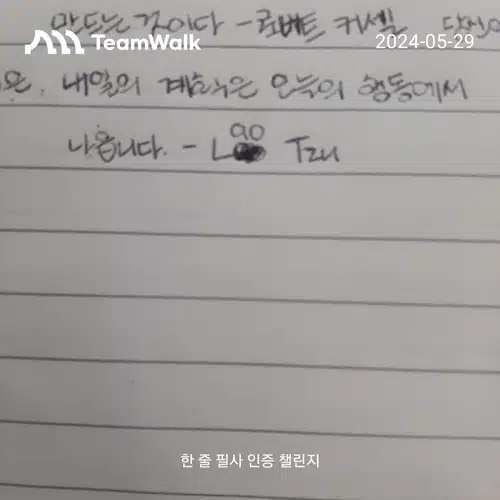 만드는 것이다 - 로버트 커셀 당신의
TeamWalk
2024-05-29
은, 내일의 계획은 오늘의 행동에서
나옵니다. - Lao Tzu
한 줄 필사 인증 챌린지